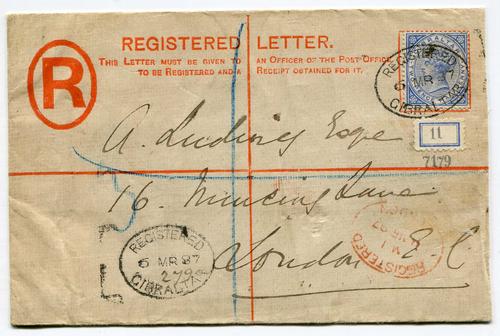 REGISTERED LETTER.
THIS LETTER MUST BE GIVEN TO AN OFFICER OF THE POST OFFICE
TO BE REGISTERED AND A RECEIPT OBTAINED FOR IT.
R
REGISTERED
6 MR 87
GIBRALTAR
11
7179
A. Ludwig Esqre
16. Mincing Lane
London E C
REGISTERED
6 MR 87
279
GIBRALTAR
REGISTERED